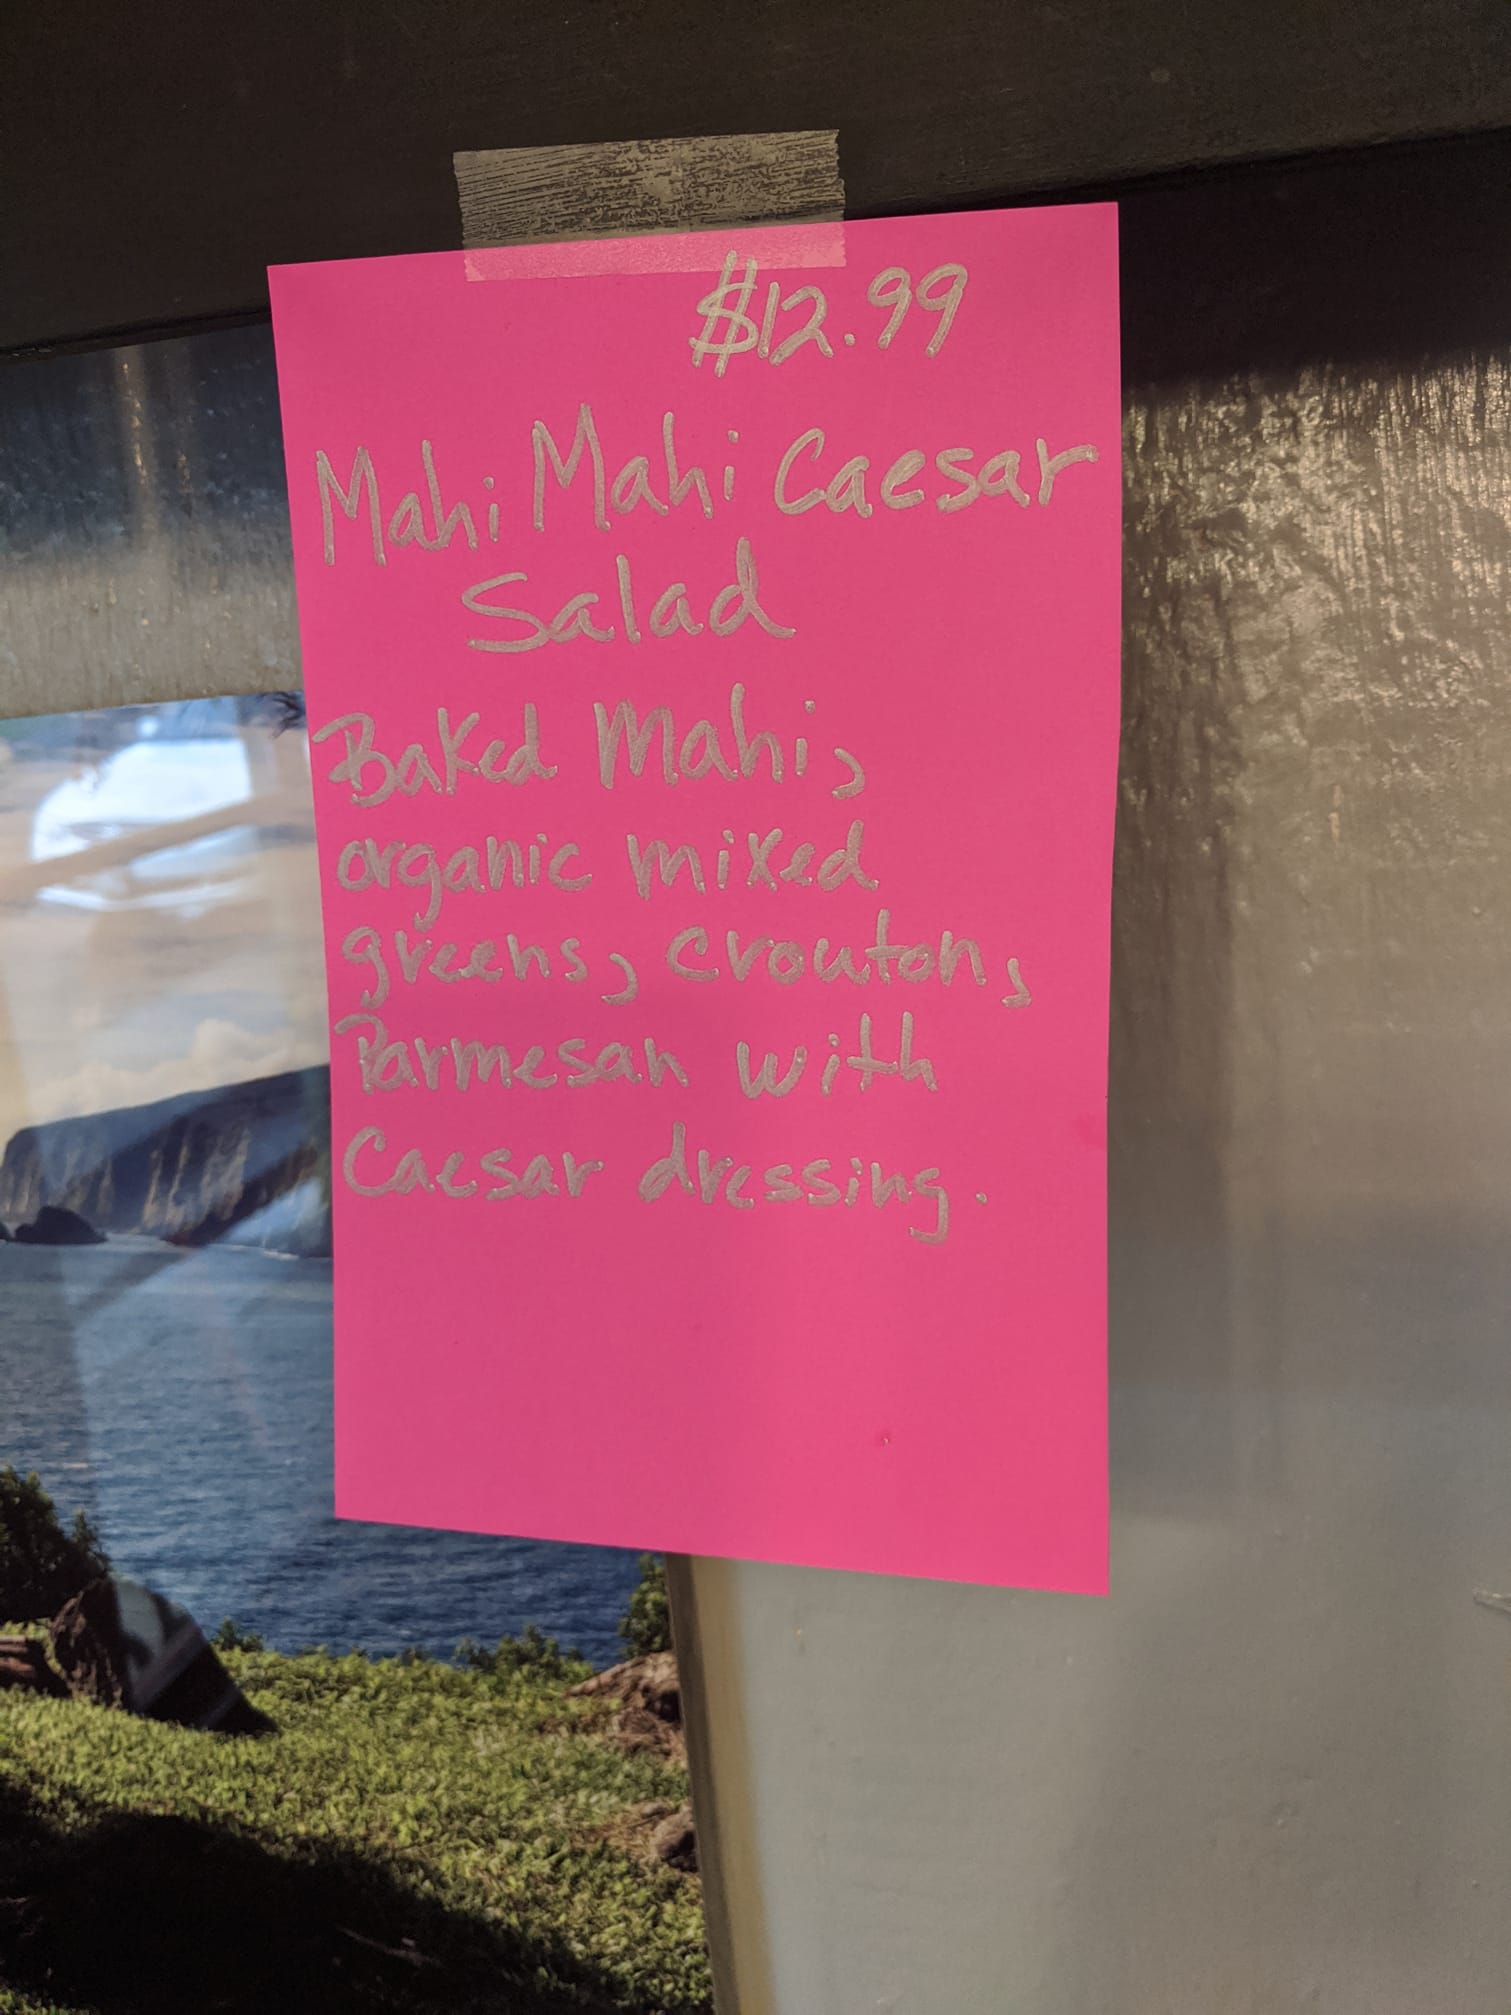 $12.99
Mahi Mahi Caesar
Salad
Baked Mahi,
organic mixed
greens, crouton,
Parmesan with
Caesar dressing.